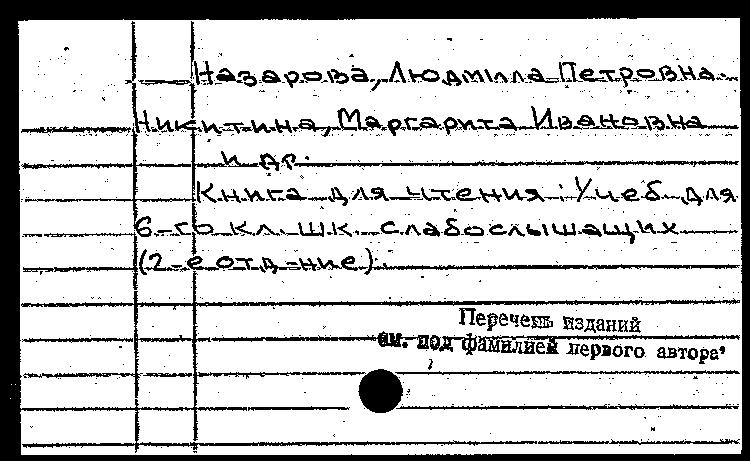 Назарова, Людмилла Петровна.
Никитина, Маргарита Ивановна
и др.
Книга для чтения: Учеб. для
6-го кл. шк. слабослышащих
(2-е отд-ние).
Перечень изданий
см. под фамилией первого автора.